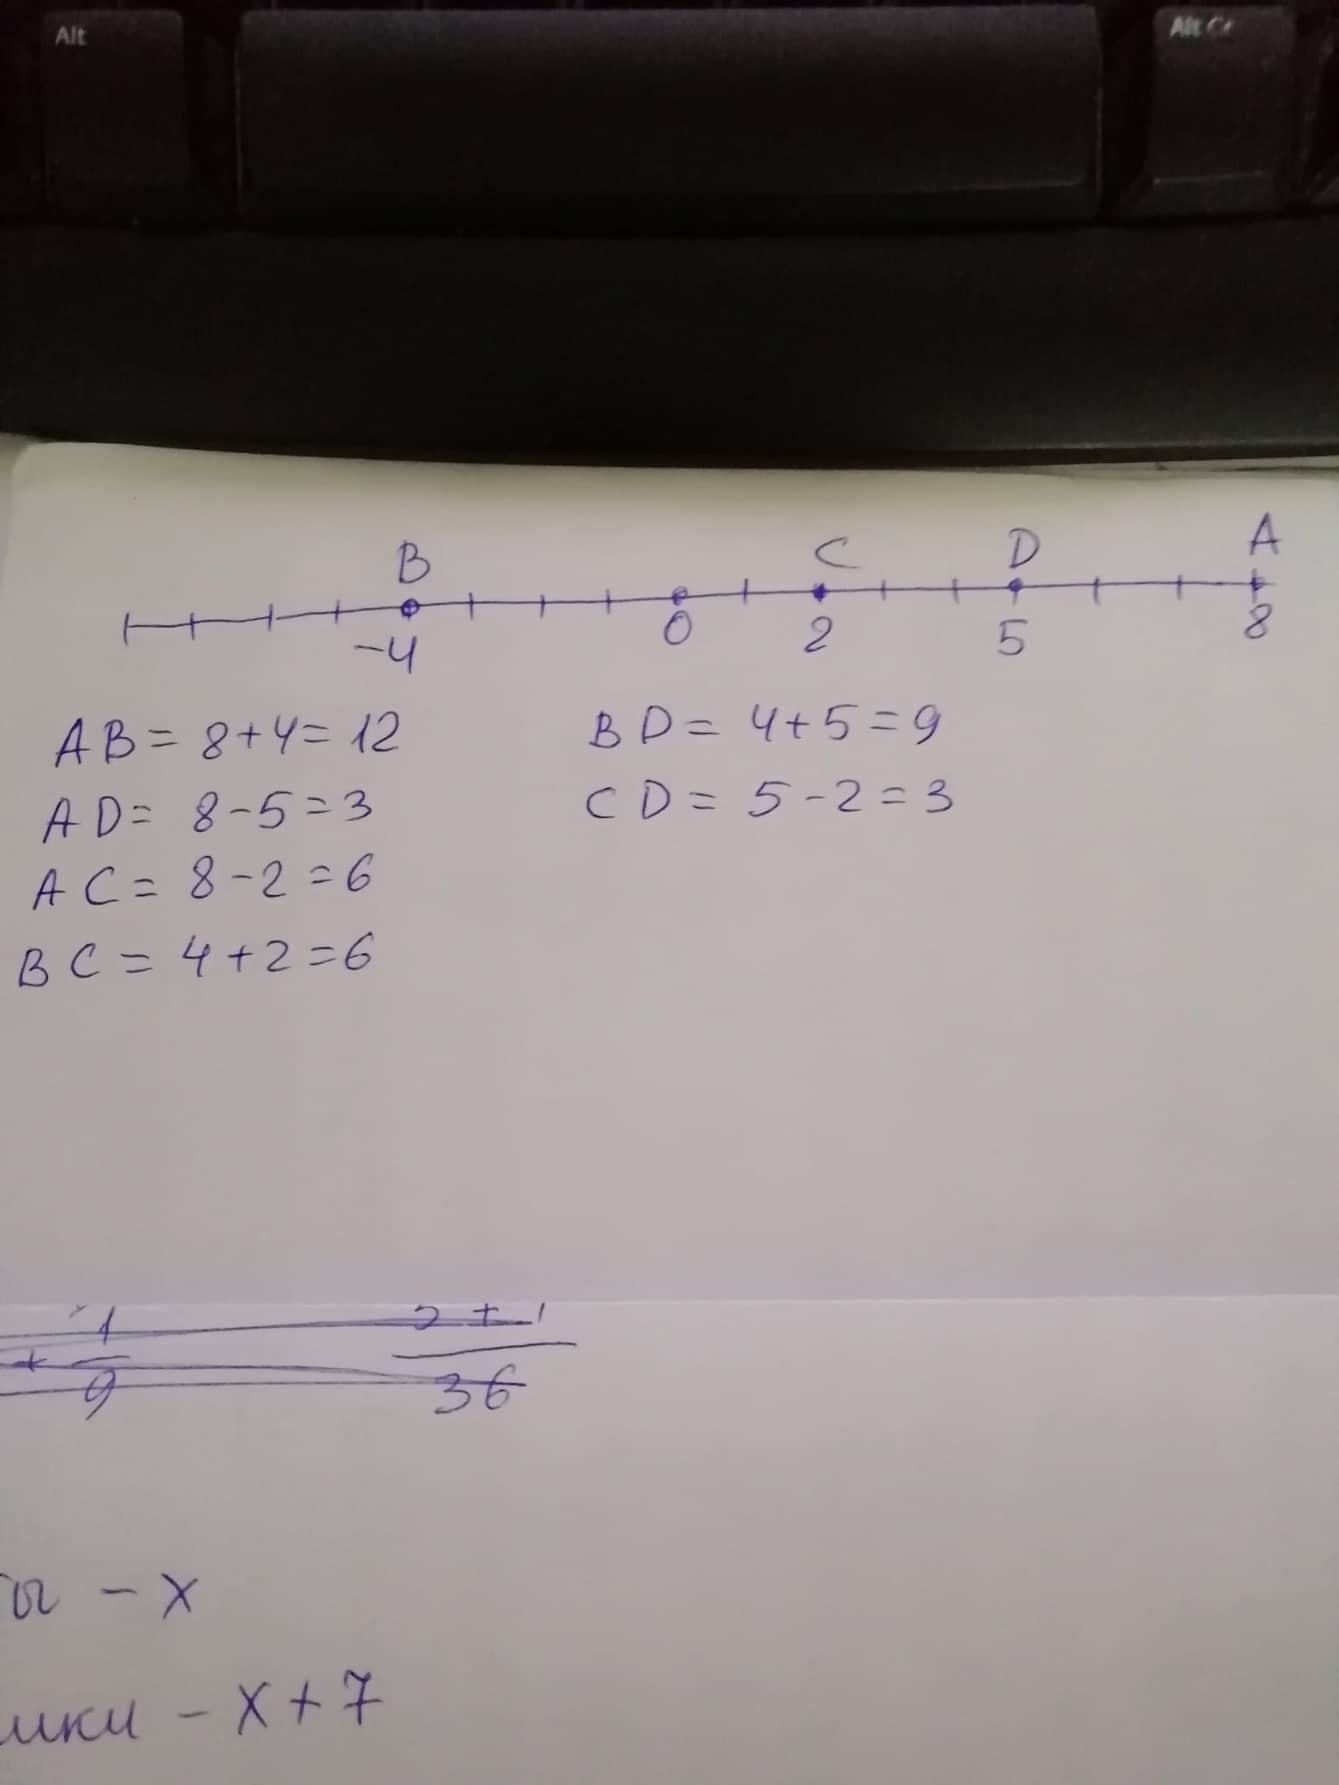 Alt
B C D A
-4 0 2 5 8
AB = 8+4 = 12
AD = 8-5 = 3
AC = 8-2 = 6
BC = 4+2 = 6
BD = 4+5 = 9
CD = 5-2 = 3
+ 1/9
36
- x
- x + 7